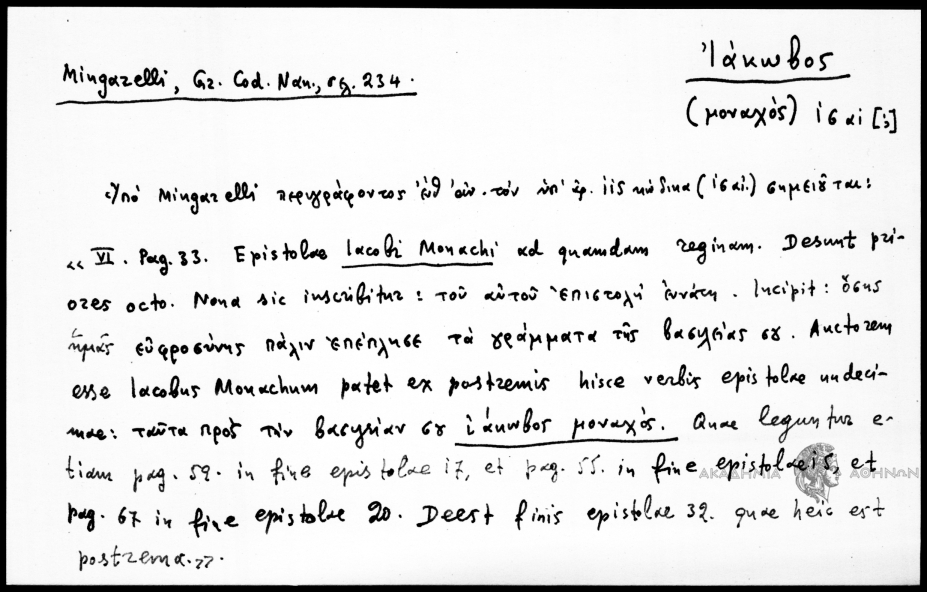 Mingarelli, Gr. Cod. Nan., σελ. 234.
Ἰάκωβος
(μοναχὸς) ις αἰ [;]
Ὑπὸ Mingarelli περιγράφοντος ἐνθ' ἀν. τὸν ὑπ' ἀρ. 115 κώδικα (ις αἰ.) σημειοῦται:
« VI. Pag. 33. Epistolae Iacobi Monachi ad quamdam reginam. Desunt pri-
ores octo. Nona sic inscribitur: τοῦ αὐτοῦ ἐπιστολὴ ἐννάτη. Incipit: ὅσης
ἡμᾶς εὐφροσύνης πάλιν ἐπέπλησε τὰ γράμματα τῆς βασιλείας σου. Auctorem
esse Iacobus Monachum patet ex postremis hisce verbis epistolae undeci-
mae: ταῦτα πρὸς τὴν βασιλείαν σου ἰάκωβος μοναχός. Quae leguntur e-
tiam pag. 52. in fine epistolae 17, et pag. 55. in fine epistolae 15, et
pag. 67 in fine epistolae 20. Deest finis epistolae 32. quae heic est
postrema.»
ΑΚΑΔΗΜΙΑ ΑΘΗΝΩΝ